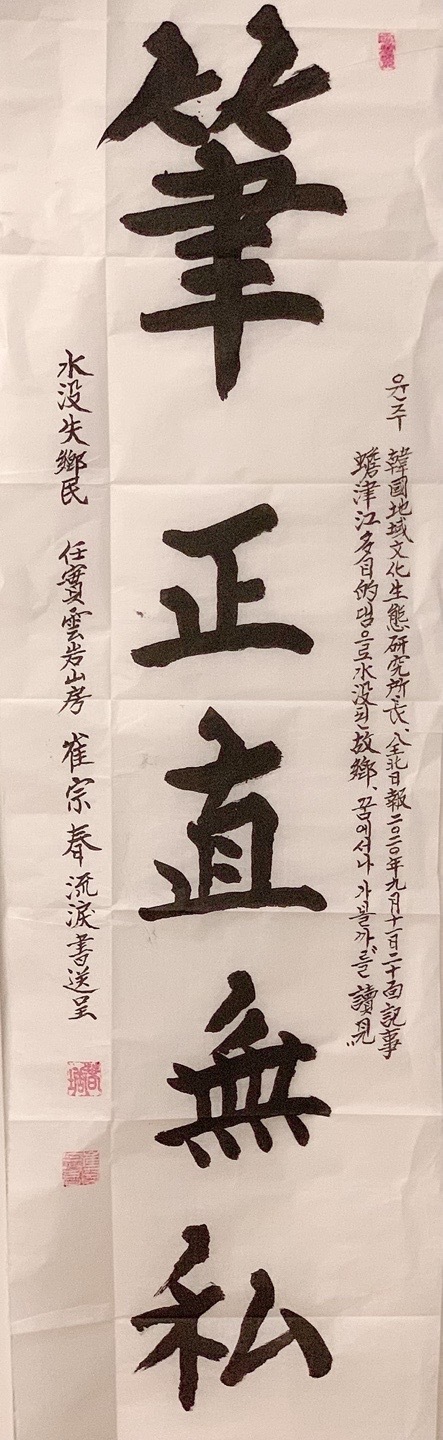 윤주 韓国地域文化生態研究所長、全北日報二〇二〇年九月十一日二十面記事
蟾津江多目的댐으로水没된故鄉、꿈에서나 가볼까를 讀見
筆正直無私
水没失鄉民 任實雲岩山房 崔宗春流淚書送呈